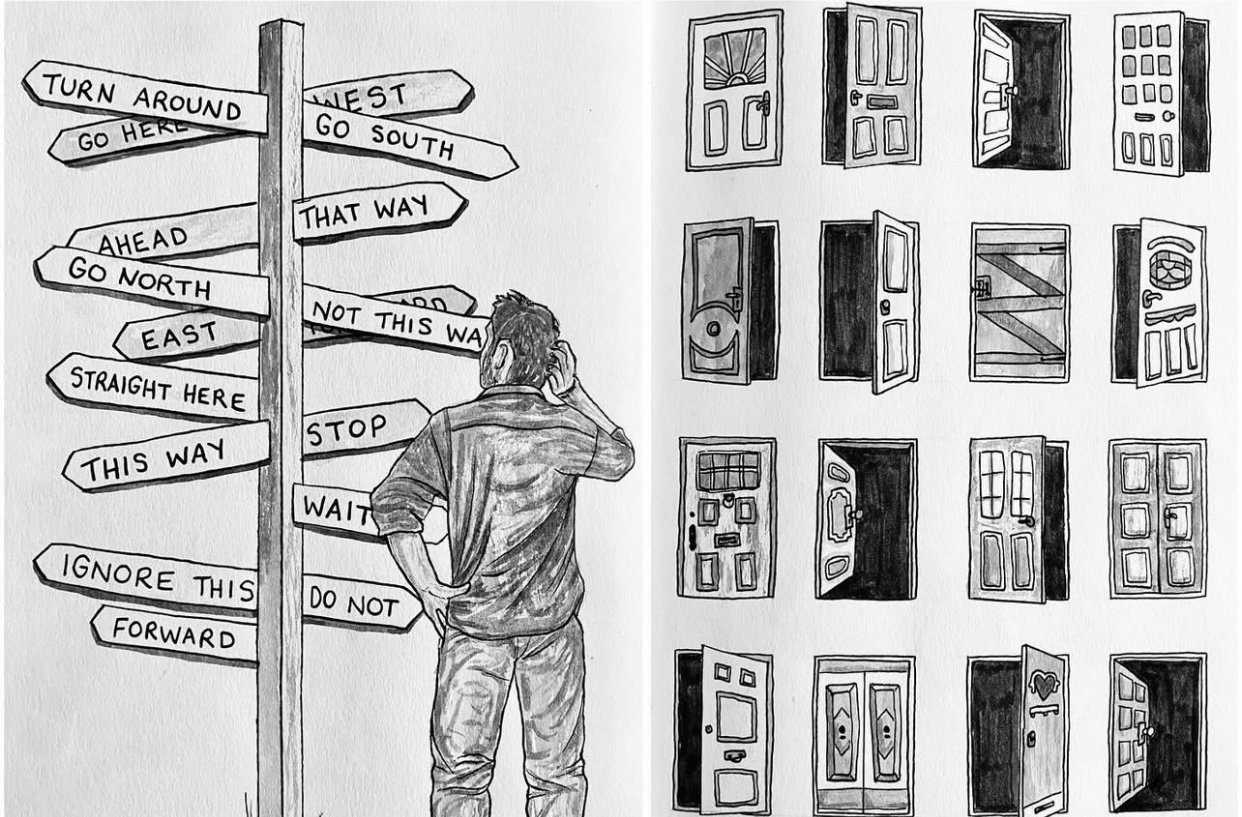 TURN AROUND
WEST
GO HERE
GO SOUTH
THAT WAY
AHEAD
GO NORTH
NOT THIS WA
EAST
STRAIGHT HERE
STOP
THIS WAY
WAIT
IGNORE THIS
DO NOT
FORWARD